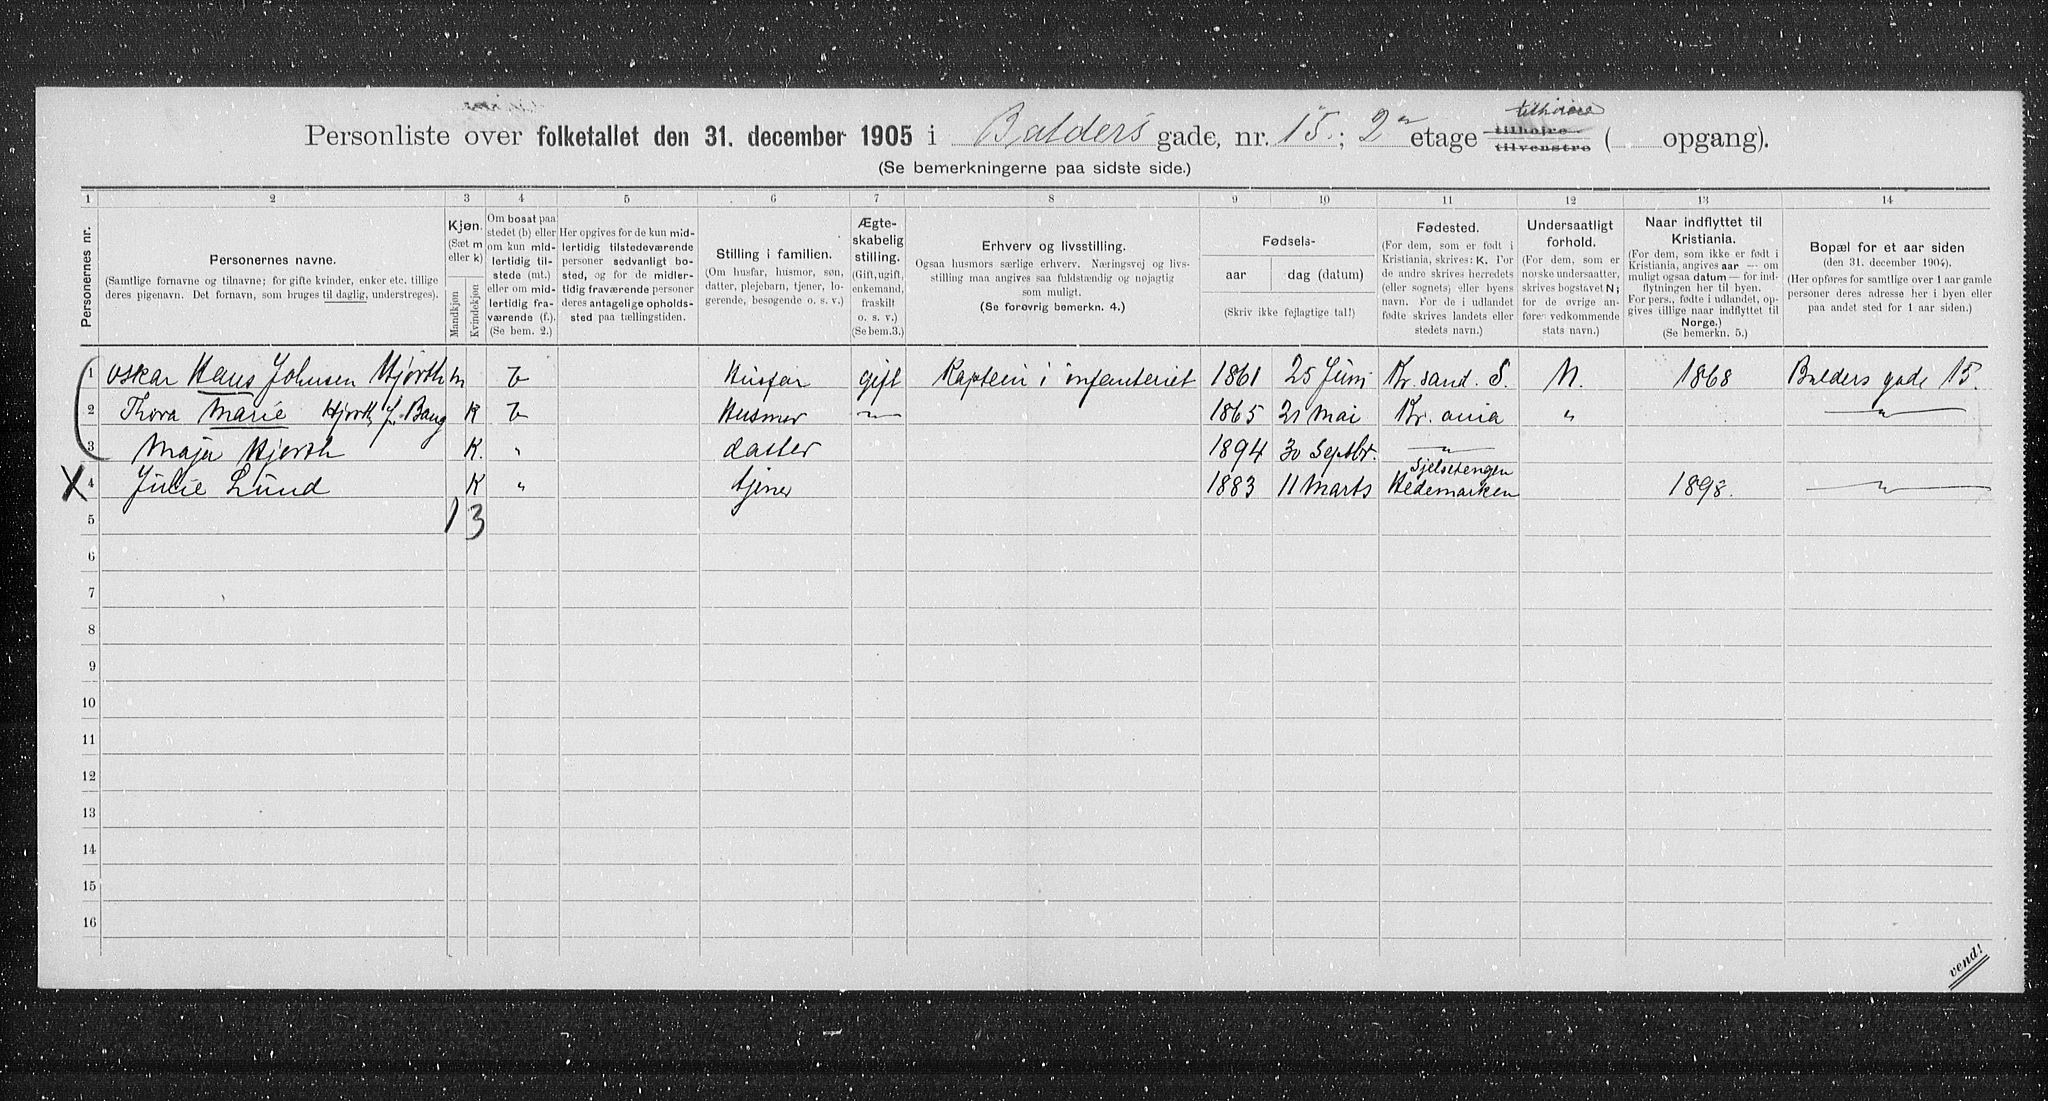 Personliste over folketallet den 31. december 1905 i Balders gade, nr. 15.; 2en etage tilhøire tilhøjre tilvenstre ( opgang).
(Se bemerkningerne paa sidste side.)
1 2 3 4 5 6 7 8 9 10 11 12 13 14
Personernes nr.
Personernes navne.
(Samtlige fornavne og tilnavne; for gifte kvinder, enker etc. tillige deres pigenavn. Det fornavn, som bruges til daglig, understreges).
Kjøn.
(Sæt m eller k)
Mandkjøn
Kvindekjøn
Om bosat paa stedet (b) eller om kun midlertidig tilstede (mt.) eller om midlertidig fraværende (f.). (Se bem. 2.)
Her opgives for de kun midlertidig tilstedeværende personer sedvanligt bosted, og for de midlertidig fraværende personer deres antagelige opholdssted paa tællingstiden.
Stilling i familien.
(Om husfar, husmor, søn, datter, plejebarn, tjener, logerende, besøgende o. s. v.)
Ægteskabelig stilling.
(Gift, ugift, enkemand, fraskilt o. s. v.)
(Se bem.3.)
Erhverv og livsstilling.
Ogsaa husmors særlige erhverv. Næringsvej og livsstilling maa angives saa fuldstændig og nøjagtig som muligt.
(Se forøvrig bemerkn. 4.)
Fødsels-
aar
dag (datum)
(Skriv ikke fejlagtige tal!)
Fødested.
(For dem, som er født i Kristiania, skrives: K. For de andre skrives herredets (eller sognets) eller byens navn. For de i udlandet fødte skrives landets eller stedets navn.)
Undersaatligt forhold.
(For dem, som er norske undersaatter, skrives bogstavet N; for de øvrige anføres vedkommende stats navn.)
Naar indflyttet til Kristiania.
(For dem, som ikke er født i Kristiania, angives aar — om muligt ogsaa datum — for indflytningen her til byen. For pers., fødte i udlandet, opgives tillige naar indflyttet til Norge.)
(Se bemerkn. 5.)
Bopæl for et aar siden
(den 31. december 1904).
(Her opføres for samtlige over 1 aar gamle personer deres adresse her i byen eller paa andet sted for 1 aar siden.)
1 Oskar Hans Johnsen Hjorth m b Husfar gift Kaptein i infanteriet 1861 25 Juni Kr. sand. S. N. 1868 Balders gade 15.
2 Thora Marie Hjorth f. Bang K b Husmor — 1865 21 Mai Kr. ania " "
3 Maja Hjorth K. " datter 1894 30 Septbr. "
4 Julie Lund K " tjener 1883 11 Marts Hedemarken 1898. "
5 1 3
6
7
8
9
10
11
12
13
14
15
16
vend!